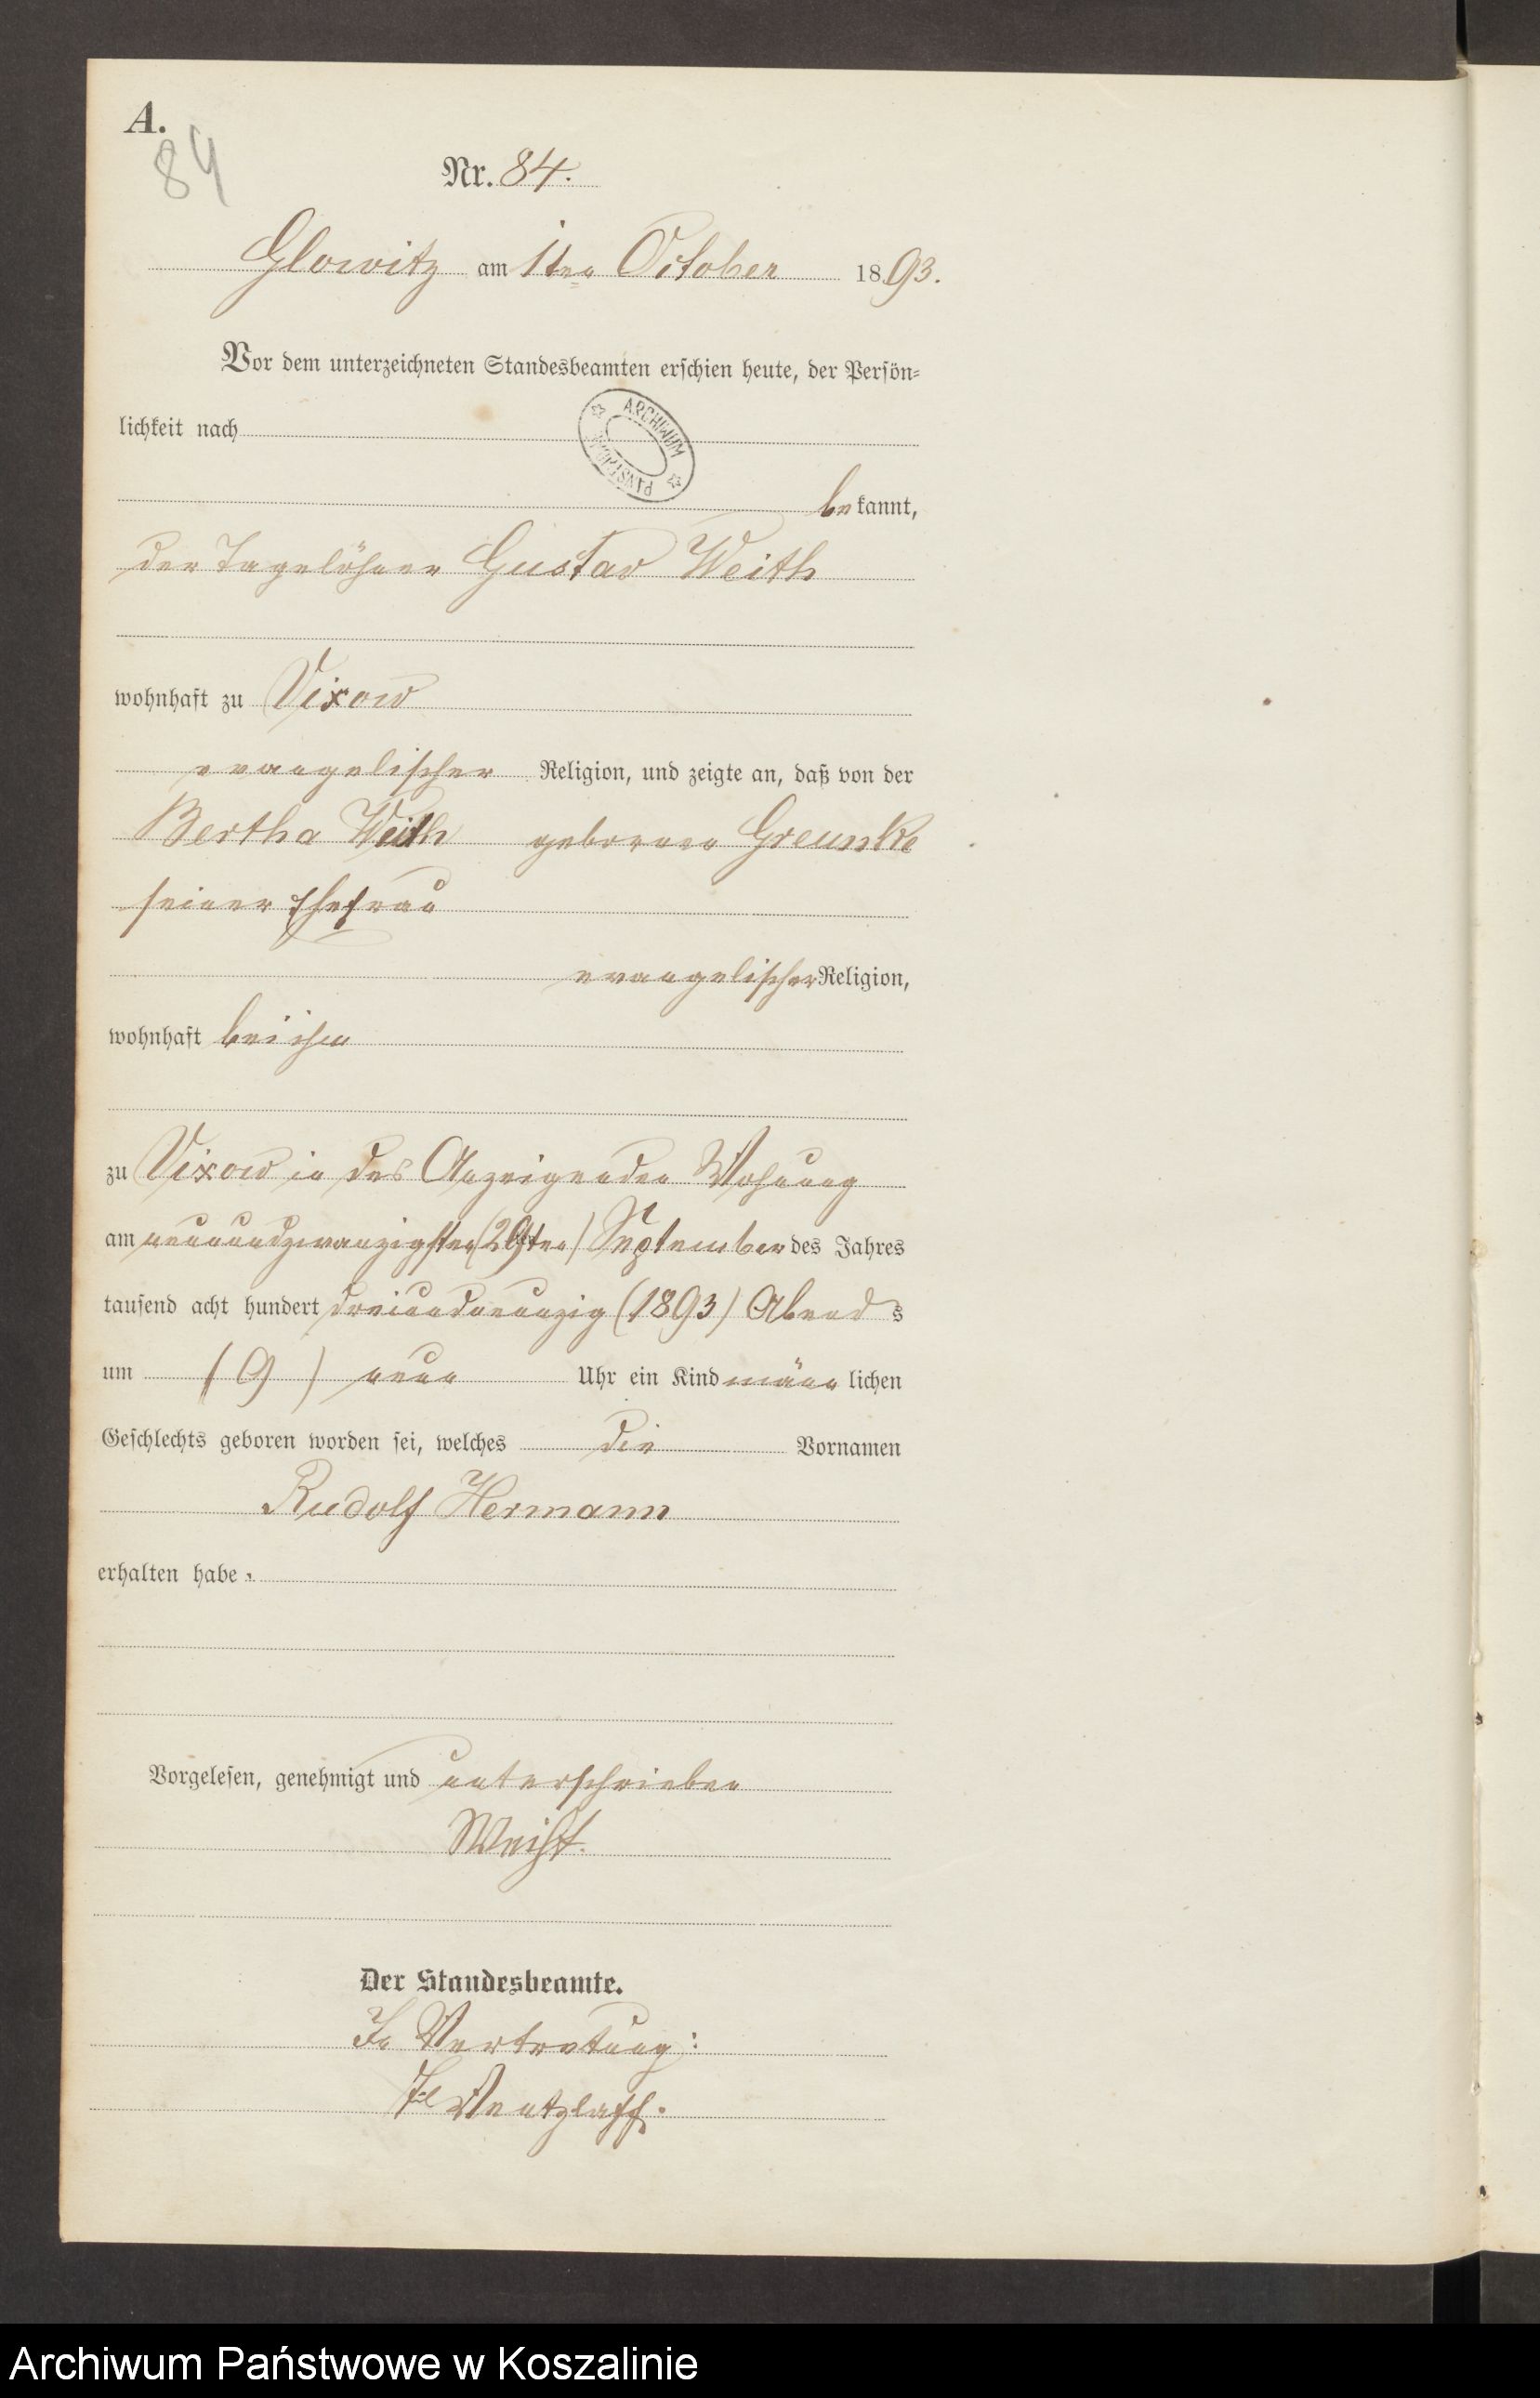 A.
84
Nr. 84.
Glowitz am 1ten October 1893.
Vor dem unterzeichneten Standesbeamten erschien heute, der Persön-
lichkeit nach
ARCHIWUM
PAŃSTWOWE
bekannt,
der Tagelöhner Gustav Weith
wohnhaft zu Vixow
evangelischer Religion, und zeigte an, daß von der
Bertha Weith geborenen Greunke
seiner Ehefrau
evangelischer Religion,
wohnhaft bei ihm
zu Vixow in des Anzeigenden Wohnung
am neunundzwanzigsten (29ten) September des Jahres
tausend acht hundert dreiundneunzig (1893) Abends
um (9) neun Uhr ein Kind männlichen
Geschlechts geboren worden sei, welches die Vornamen
Rudolf Hermann
erhalten habe.
Vorgelesen, genehmigt und unterschrieben
Weiht.
Der Standesbeamte.
In Vertretung:
Ventzlaff.
Archiwum Państwowe w Koszalinie